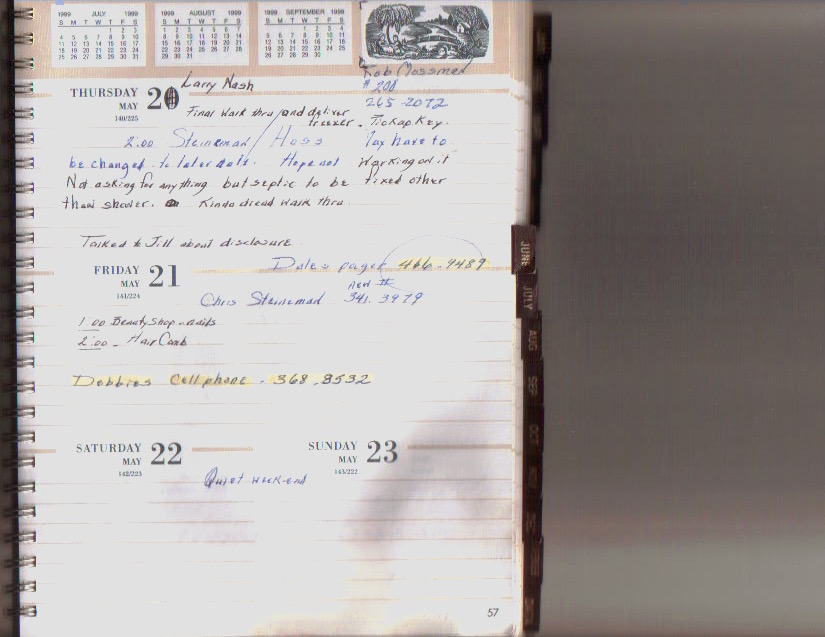 1999 JULY
S M T W T F S
1 2 3
4 5 6 7 8 9 10
11 12 13 14 15 16 17
18 19 20 21 22 23 24
25 26 27 28 29 30 31
1999 AUGUST
S M T W T F S
1 2 3 4 5 6 7
8 9 10 11 12 13 14
15 16 17 18 19 20 21
22 23 24 25 26 27 28
29 30 31
1999 SEPTEMBER
S M T W T F S
1 2 3 4
5 6 7 8 9 10 11
12 13 14 15 16 17 18
19 20 21 22 23 24 25
26 27 28 29 30
Rob Mossman
# 200
265-2072
Larry Nash
THURSDAY 20
MAY
140/225
Final walk thru and deliver
freezer. Pick up Key.
2:00 Steineman / Hoss May have to
be changed to later date. Hope not working on it
Not asking for anything but septic to be fixed other
than shower. Kinda dread walk thru
Talked to Jill about disclosure
FRIDAY 21
MAY
141/224
Dale's pager 466-9489
new #
Chris Steineman 341.3979
1:00 Beauty Shop - nails
2:00 - Hair Comb
Debbies Cellphone - 368-8532
SATURDAY 22
MAY
142/223
SUNDAY 23
MAY
143/222
Quiet week-end
57
JUNE
JULY
AUG
SEP
OCT